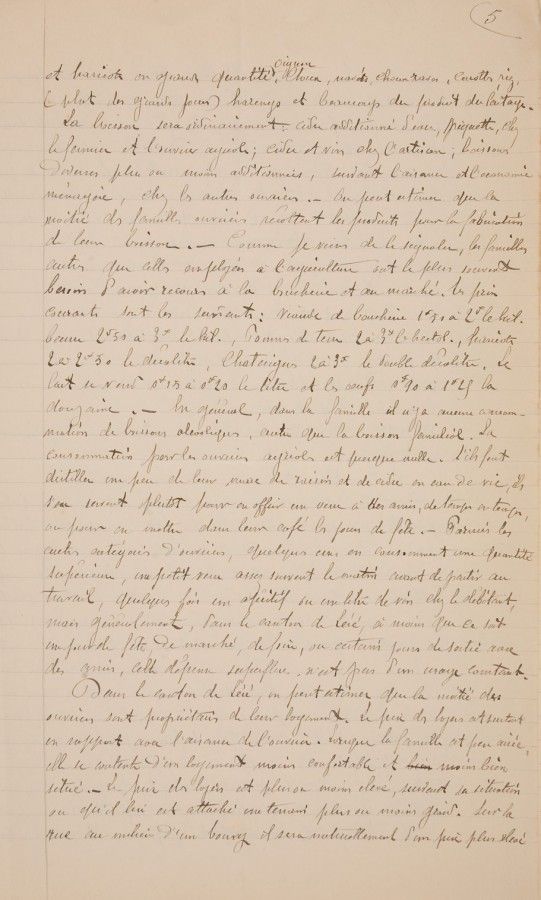 5
et haricots en grande quantité, oignon, choux, navets, choux raves, carottes, riz,
(plat des grands jours) harengs et beaucoup du produit de laitage.
La boisson sera ordinairement : cidre additionné d'eau, piquette, chez
le fermier et l'ouvrier agricole ; cidre et vin chez l'artisan ; boissons
diverses plus ou moins additionnées, suivant l'aisance et l'économie
ménagère, chez les autres ouvriers. — On peut estimer que la
moitié des familles ouvrières récoltent les produits pour la fabrication
de leur boisson. — Comme je viens de le signaler, les familles
autres que celles employées à l'agriculture ont le plus souvent
besoin d'avoir recours à la boucherie et au marché. Les prix
courants sont les suivants : viande de boucherie 1f50 à 2f le kil.
beurre 2f50 à 3f le kil., Pommes de terre 2 à 3f l'hectol., haricots
2 à 2f50 le décalitre, Châtaignes 2 à 3f le double décalitre. Le
lait se vend 0f15 à 0f20 le litre et les œufs 0f90 à 1f25 la
douzaine. — En général, dans la famille il n'y a aucune consom-
mation de boissons alcooliques, autre que la boisson familiale. La
consommation pour les ouvriers agricoles est presque nulle. S'ils font
distiller un peu de leur marc de raisin et de cidre en eau de vie, ils
s'en servent plutôt pour en offrir un verre à des amis, de temps en temps,
ou pour en mettre dans leur café les jours de fête. — Parmi les
autres catégories d'ouvriers, quelques uns en consomment une quantité
supérieure, un petit verre assez souvent le matin avant de partir au
travail, quelques fois un apéritif ou un litre de vin chez le débitant,
mais généralement, dans le canton de Léré, à moins que ce soit
un jour de fête, de marché, de foire, ou certains jours de sortie avec
des amis, cette dépense superflue n'est pas d'un usage constant.
Dans le canton de Léré, on peut estimer que la moitié des
ouvriers sont propriétaires de leur logement. Le prix des loyers est surtout
en rapport avec l'aisance de l'ouvrier. Lorsque la famille est peu aisée,
elle se contente d'un logement moins confortable et moins bien
situé. — Le prix des loyers est plus ou moins élevé, suivant sa situation
ou qu'il lui est attaché un terrain plus ou moins grand. Sur la
rue au milieu d'un bourg il sera naturellement d'un prix plus élevé